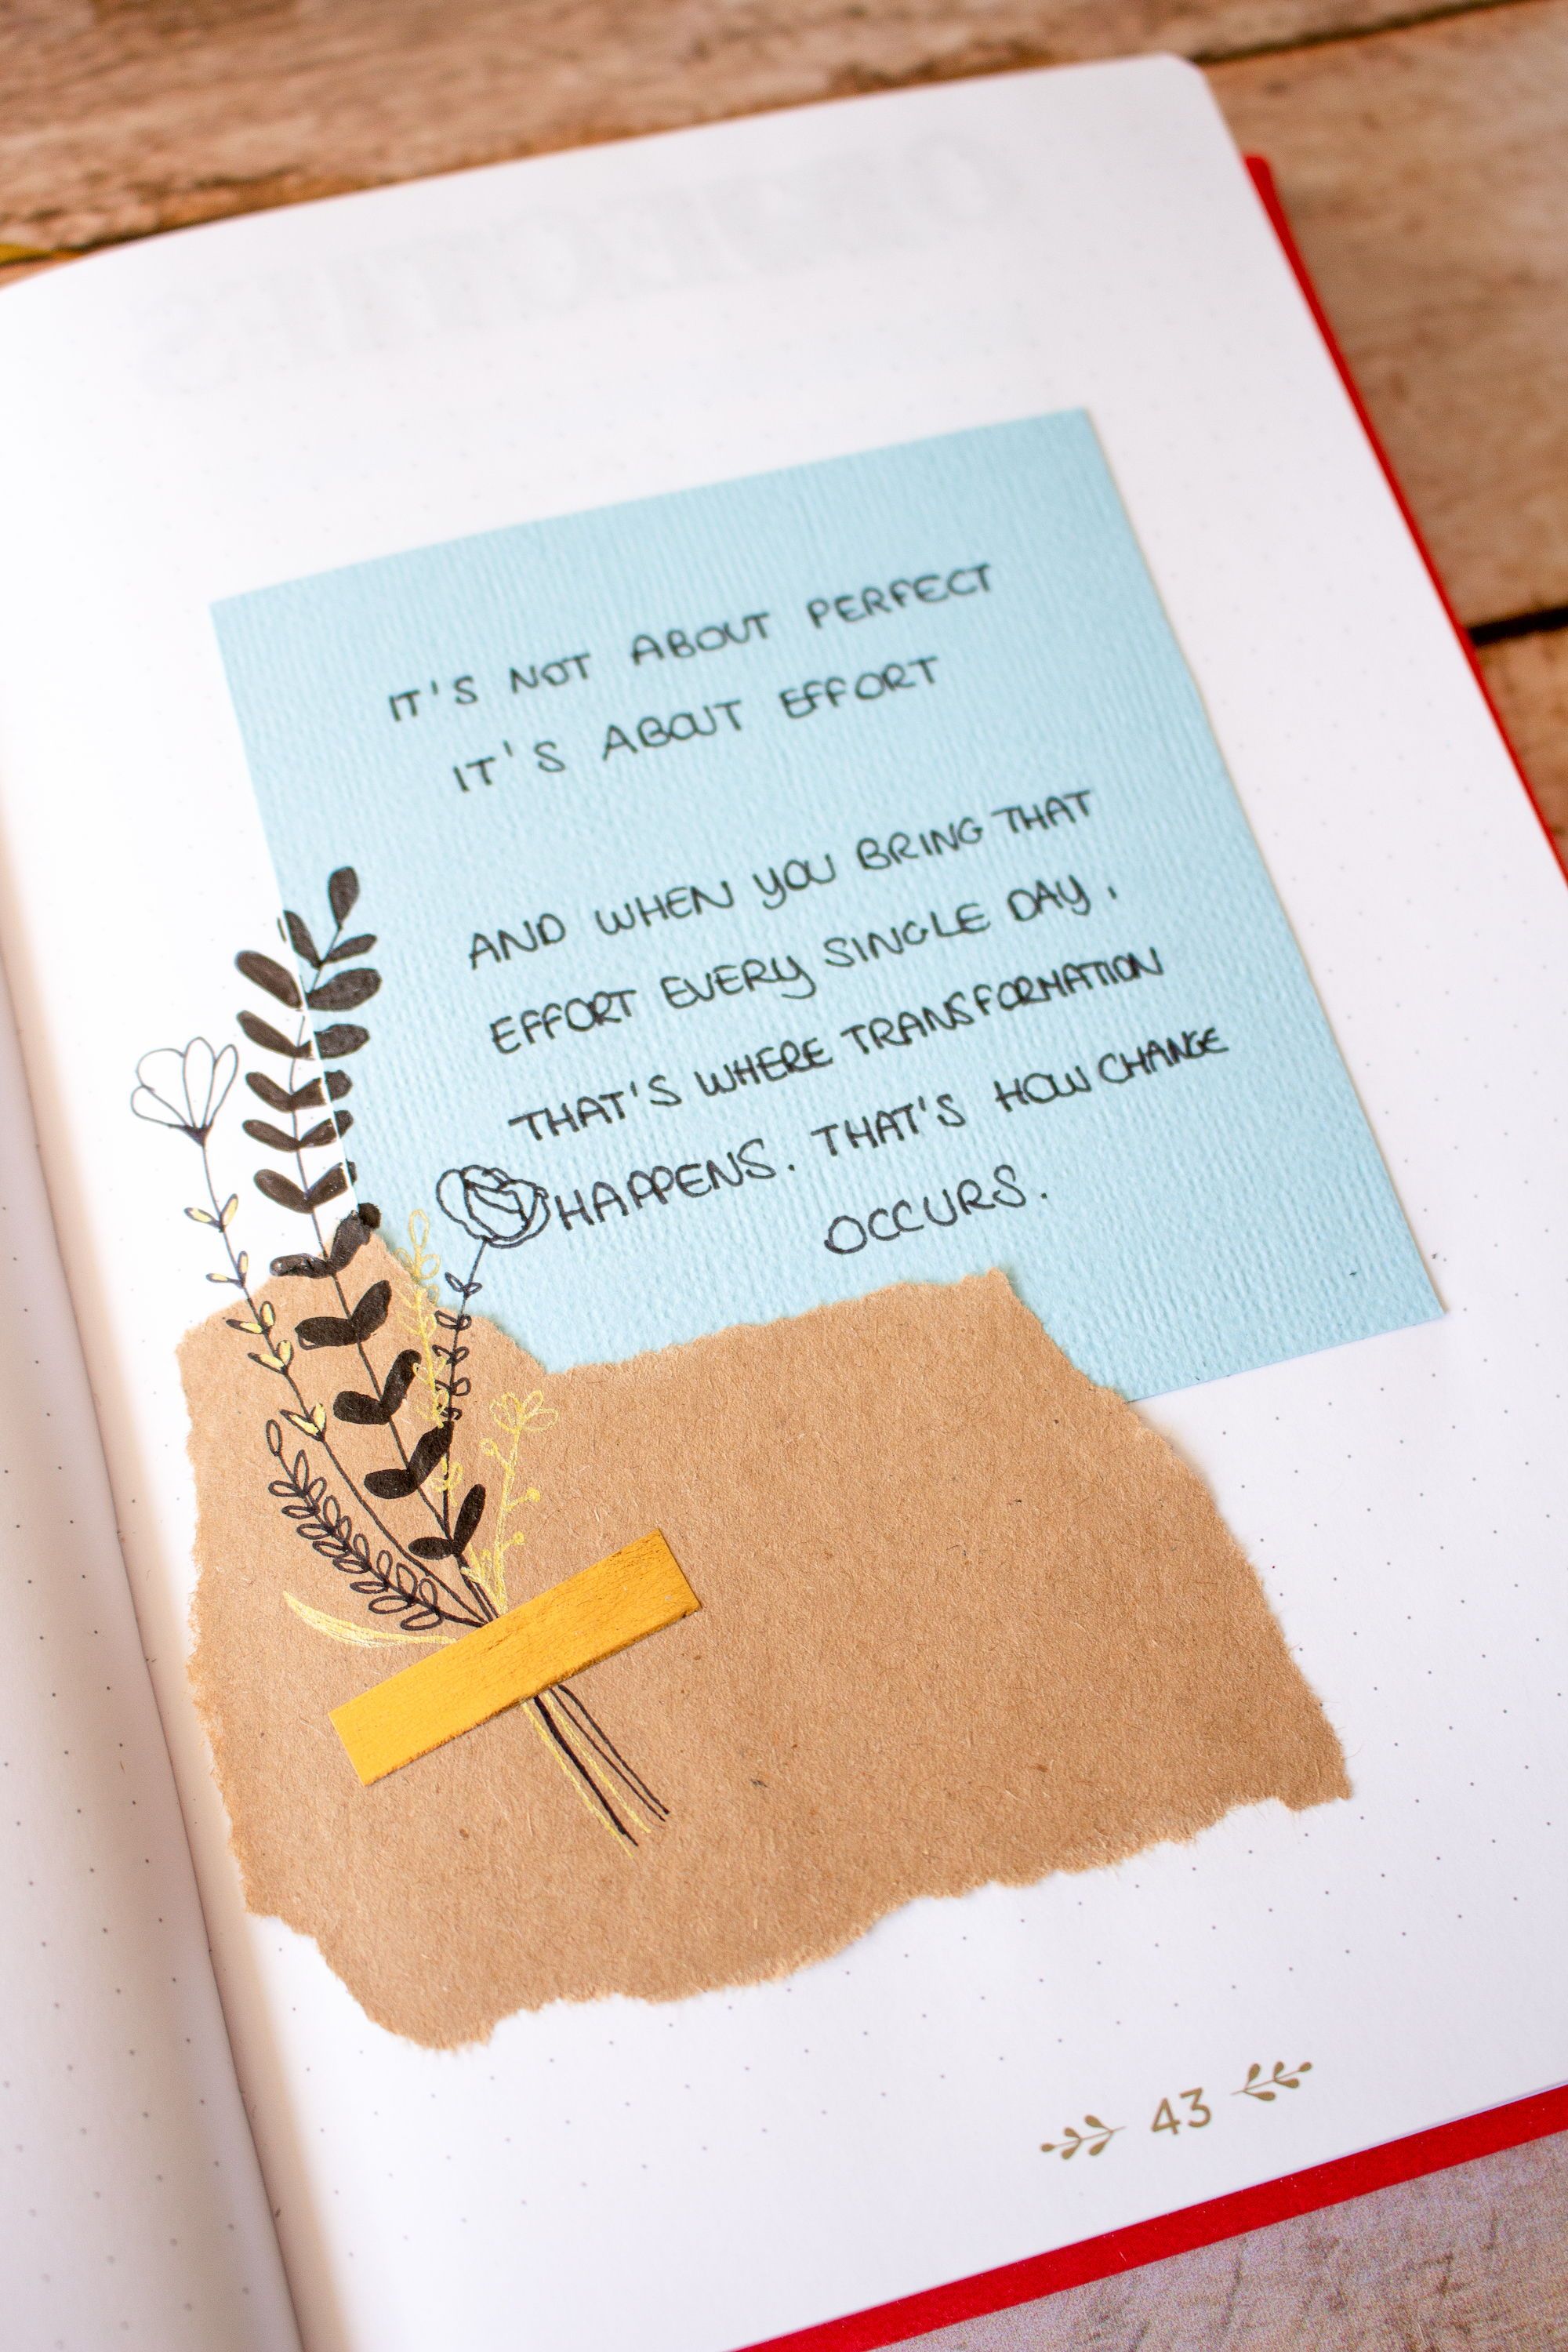 IT'S NOT ABOUT PERFECT
IT'S ABOUT EFFORT
AND WHEN YOU BRING THAT
EFFORT EVERY SINGLE DAY,
THAT'S WHERE TRANSFORMATION
HAPPENS. THAT'S HOW CHANGE
OCCURS.
43